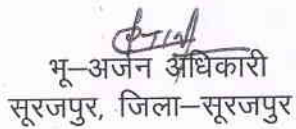 भू–अर्जन अधिकारी
सूरजपुर, जिला–सूरजपुर